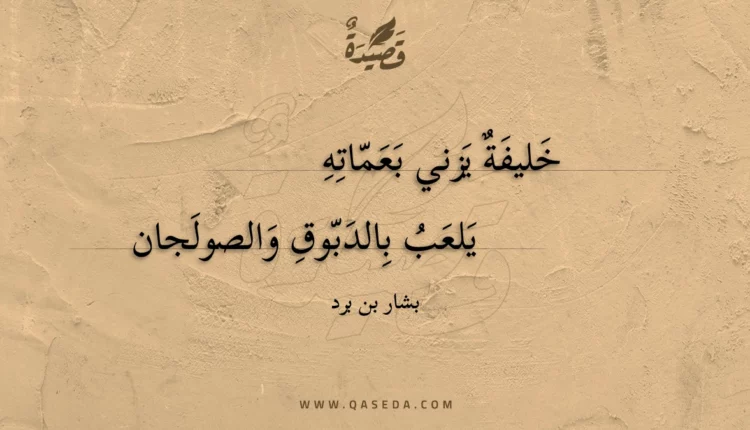 قَصِيْدَةٌ
خَليفَةٌ يَزني بَعَمّاتِهِ
يَلعَبُ بِالدَبّوقِ وَالصولَجان
بشار بن برد
WWW.QASEDA.COM